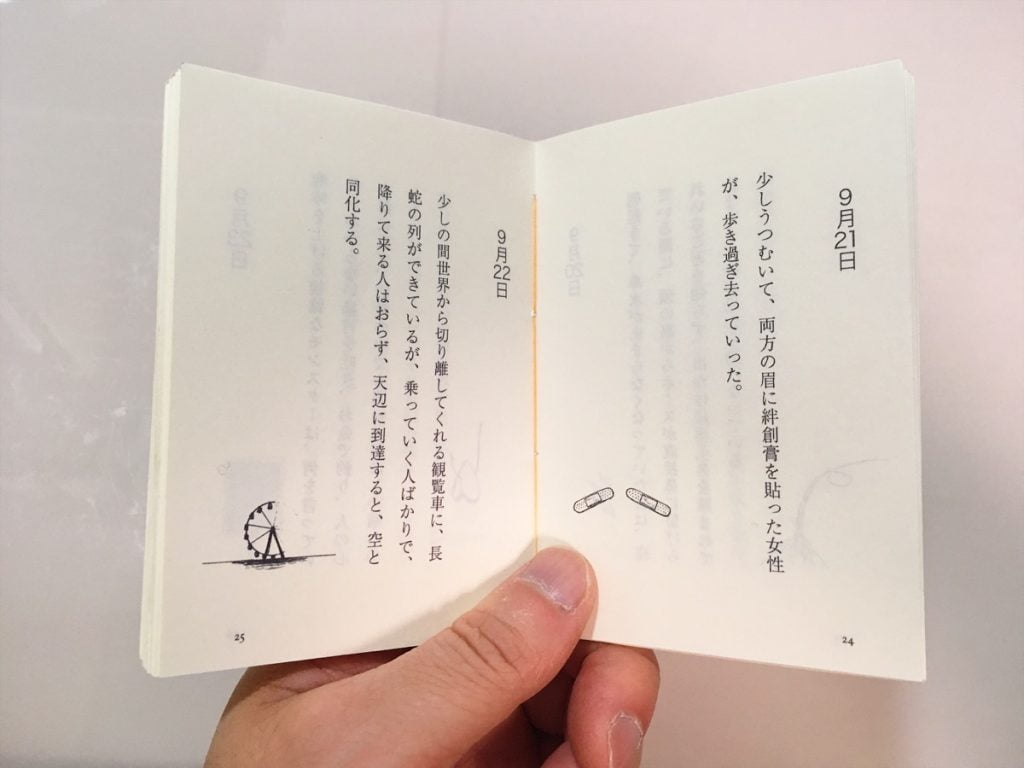 9月21日
少しうつむいて、両方の眉に絆創膏を貼った女性
が、歩き過ぎ去っていった。
24
9月22日
少しの間世界から切り離してくれる観覧車に、長
蛇の列ができているが、乗っていく人ばかりで、
降りて来る人はおらず、天辺に到達すると、空と
同化する。
25